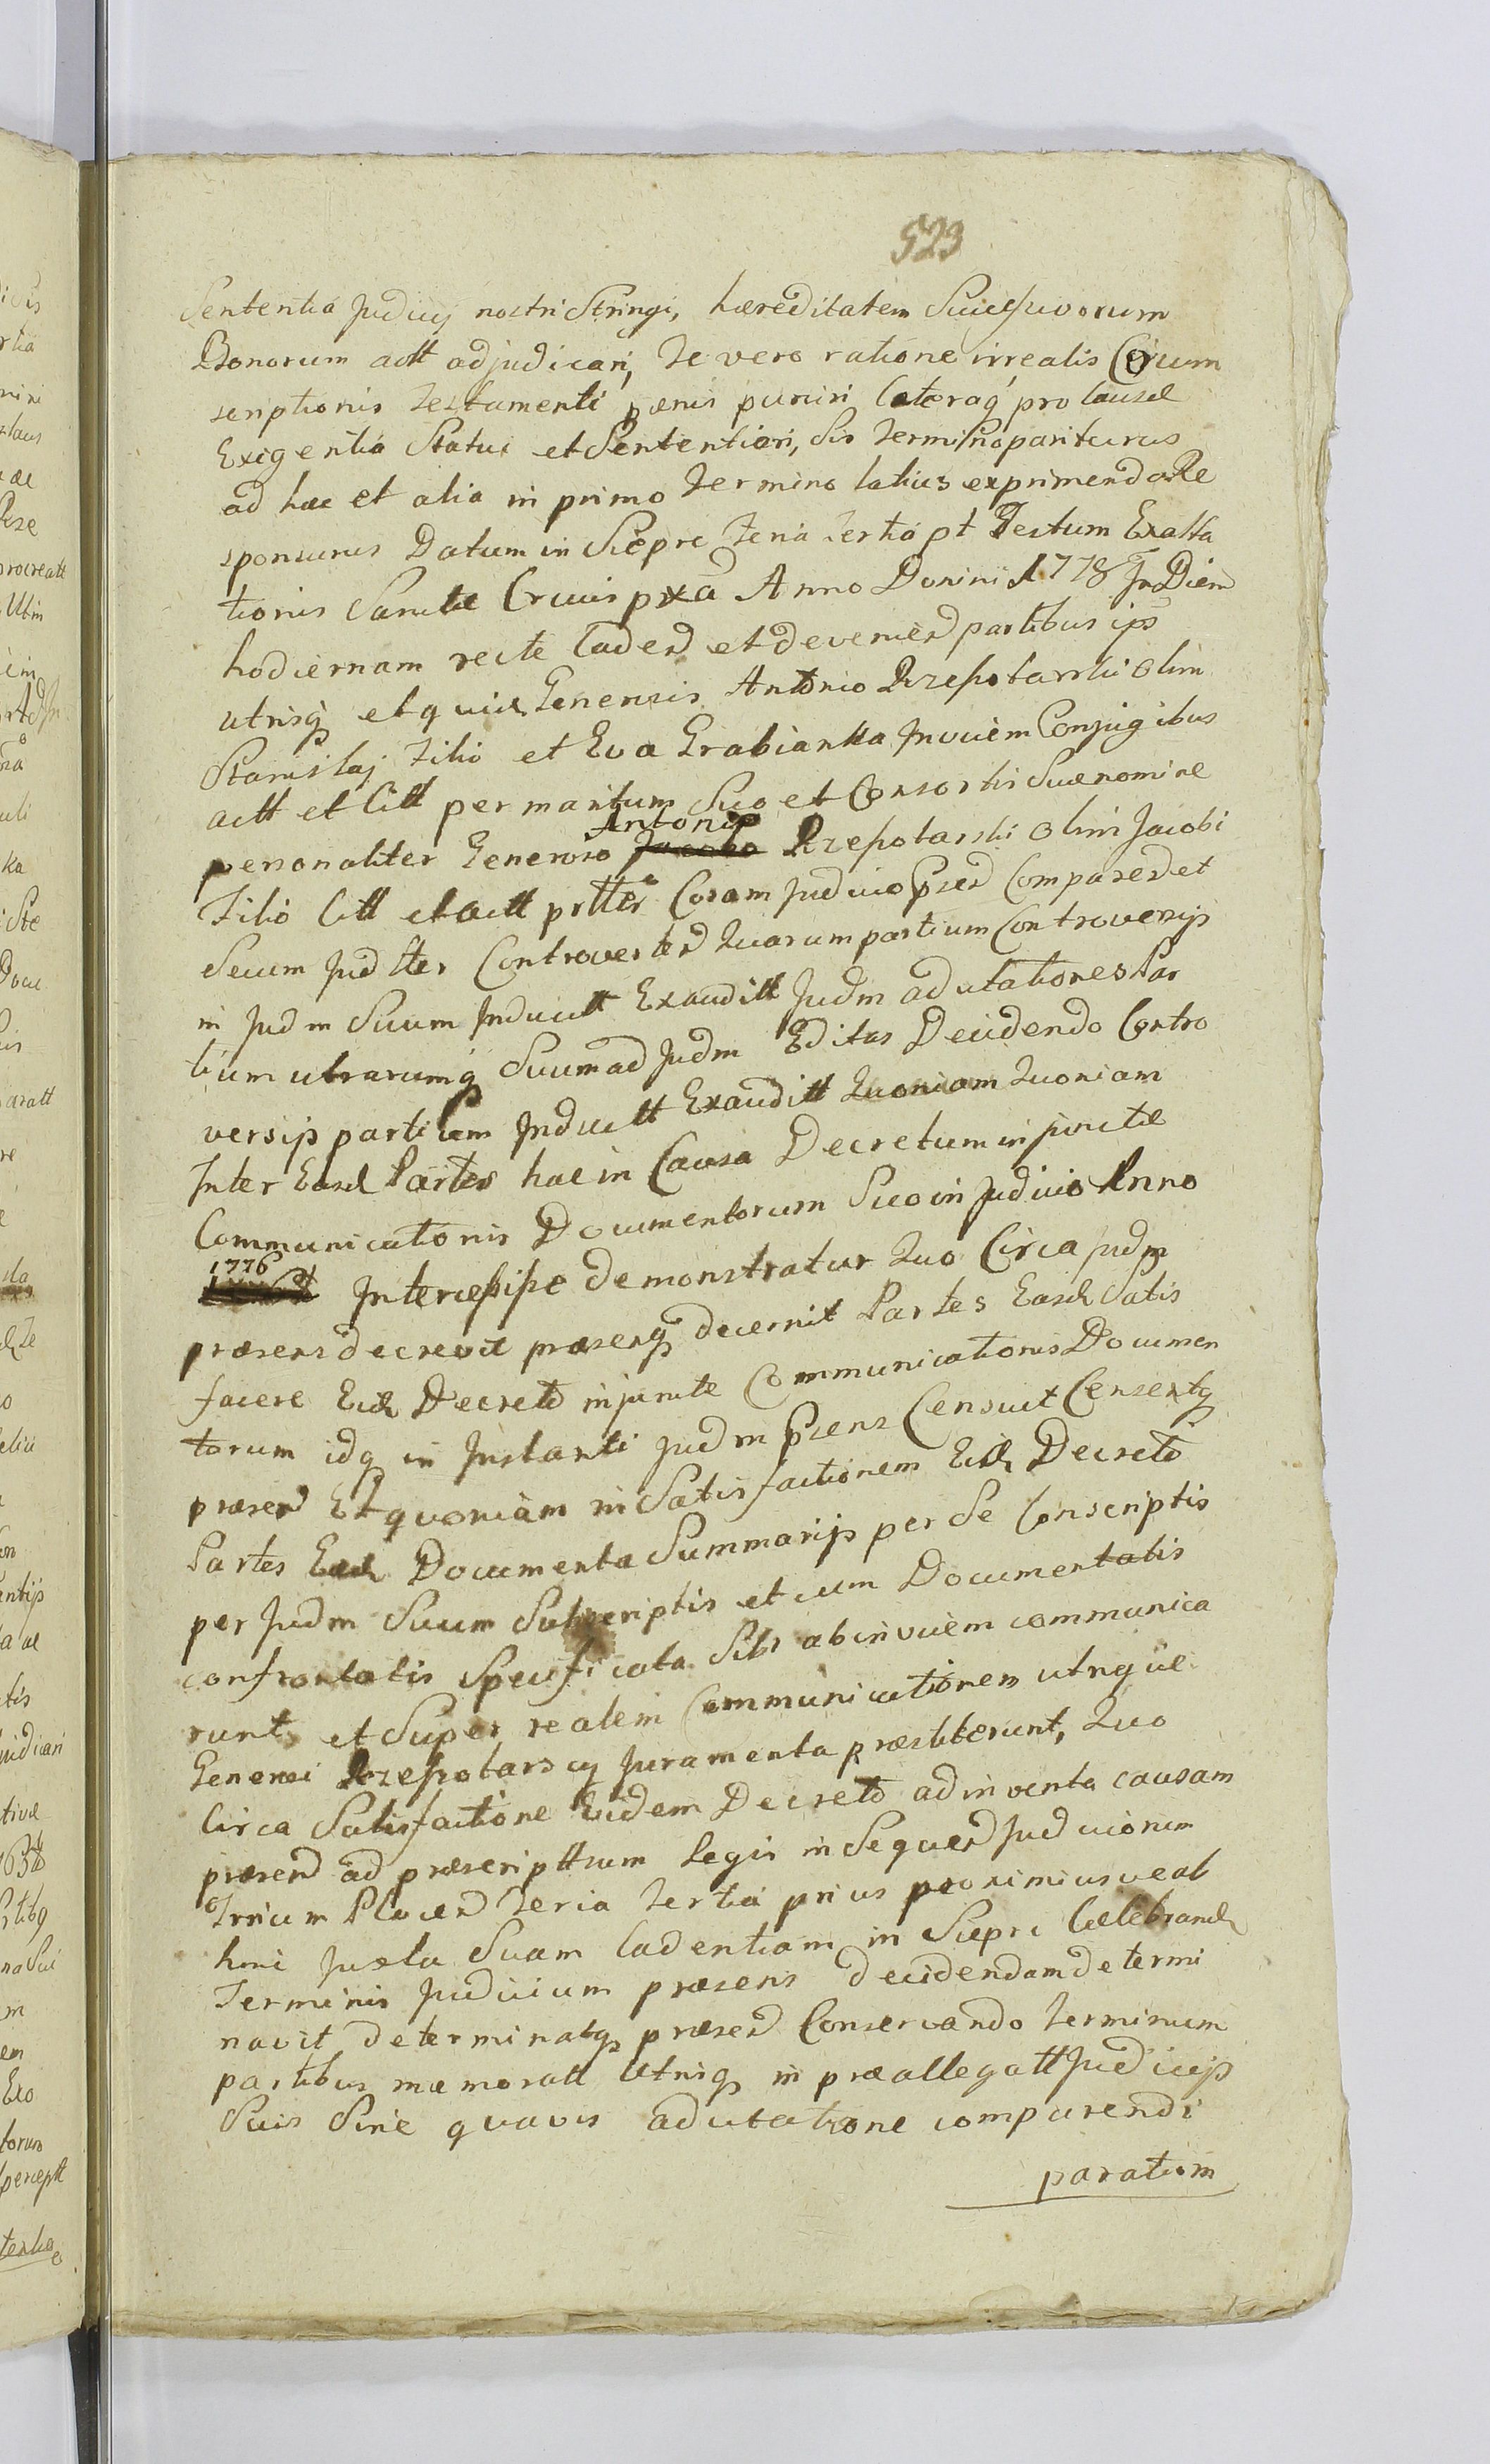 523
Sententia Judicij nostri Stringi, hæreditatem Successivorum
Bonorum actt adjudicari, Te vero ratione irrealis Circum
scriptionis Testamenti pœnis puniri Cæteraq pro Causæ
Exigentia Statui et Sententiari, Sis Termino pariturus
ad hæc et alia in primo Termino latius exprimenda Re
sponsurus Datum in Sieprc feria tertia pt Festum Exalta
tionis Sanctæ Crucis pxa Anno Domini 1778 In Diem
hodiernam recte Caden et devenien partibus ips
utrisq et quidem Generosis Antonio Rzeszotarski olim
Stanislaj Filio et Eva Grabianka Invicem Conjugibus
actt et Citt per maritum Suo et Consortis Suæ nomine
personaliter Generoso Antonio Jacobo Rzeszotarski olim Jacobi
Filio Citt et actt prtter Coram Judicio Psen Comparen et
Secum Judtter Controverten Quarum partium Controversijs
in Judm Suum Inductt Exauditt Judm ad citationes Par
tium utrarumq Suum ad Judm Editas Decidendo Contro
versijs partium Inductt Exauditt Quoniam Quoniam
Inter Easd Partes hac in Causa Decretum injunctæ
Communicationis Documentorum Suo in Judicio Anno
1776 Intercessisse demonstratur Quo Circa Judm
præsens decrevit præsensq decernit Partes Easd Satis
facere Eid Decreto injunctæ Communicationis Documen
torum idq in Instanti Judm Psens Censuit Censentq
præsen Et quoniam in Satisfactionem Eid Decreto
Partes Eæd Documenta Summarijs per Se Conscriptis
per Judm Suum Subscriptis et cum Documentatis
confrontatis Specificata Sibi abinvicem communica
runt, et Super realem Communicationem utriqüe
Generosi Rzeszotarscy Juramenta præstiterunt, Quo
Circa Satisfactione Eidem Decreto adinventa causam
præsen ad præscripttum Legis in Sequen Judiciorum
Trrium Plocen Feria Tertia prius proximius veal
hmi Juxta Suam Cadentiam in Sieprc Celebrand
Terminis Judicium præsens decidendam determi
navit determinatq præsen Conservando Terminum
partibus memoratt Utrisq in præallegatt Judicijs
Suis Sine quavis adcitatione comparendi
paratum